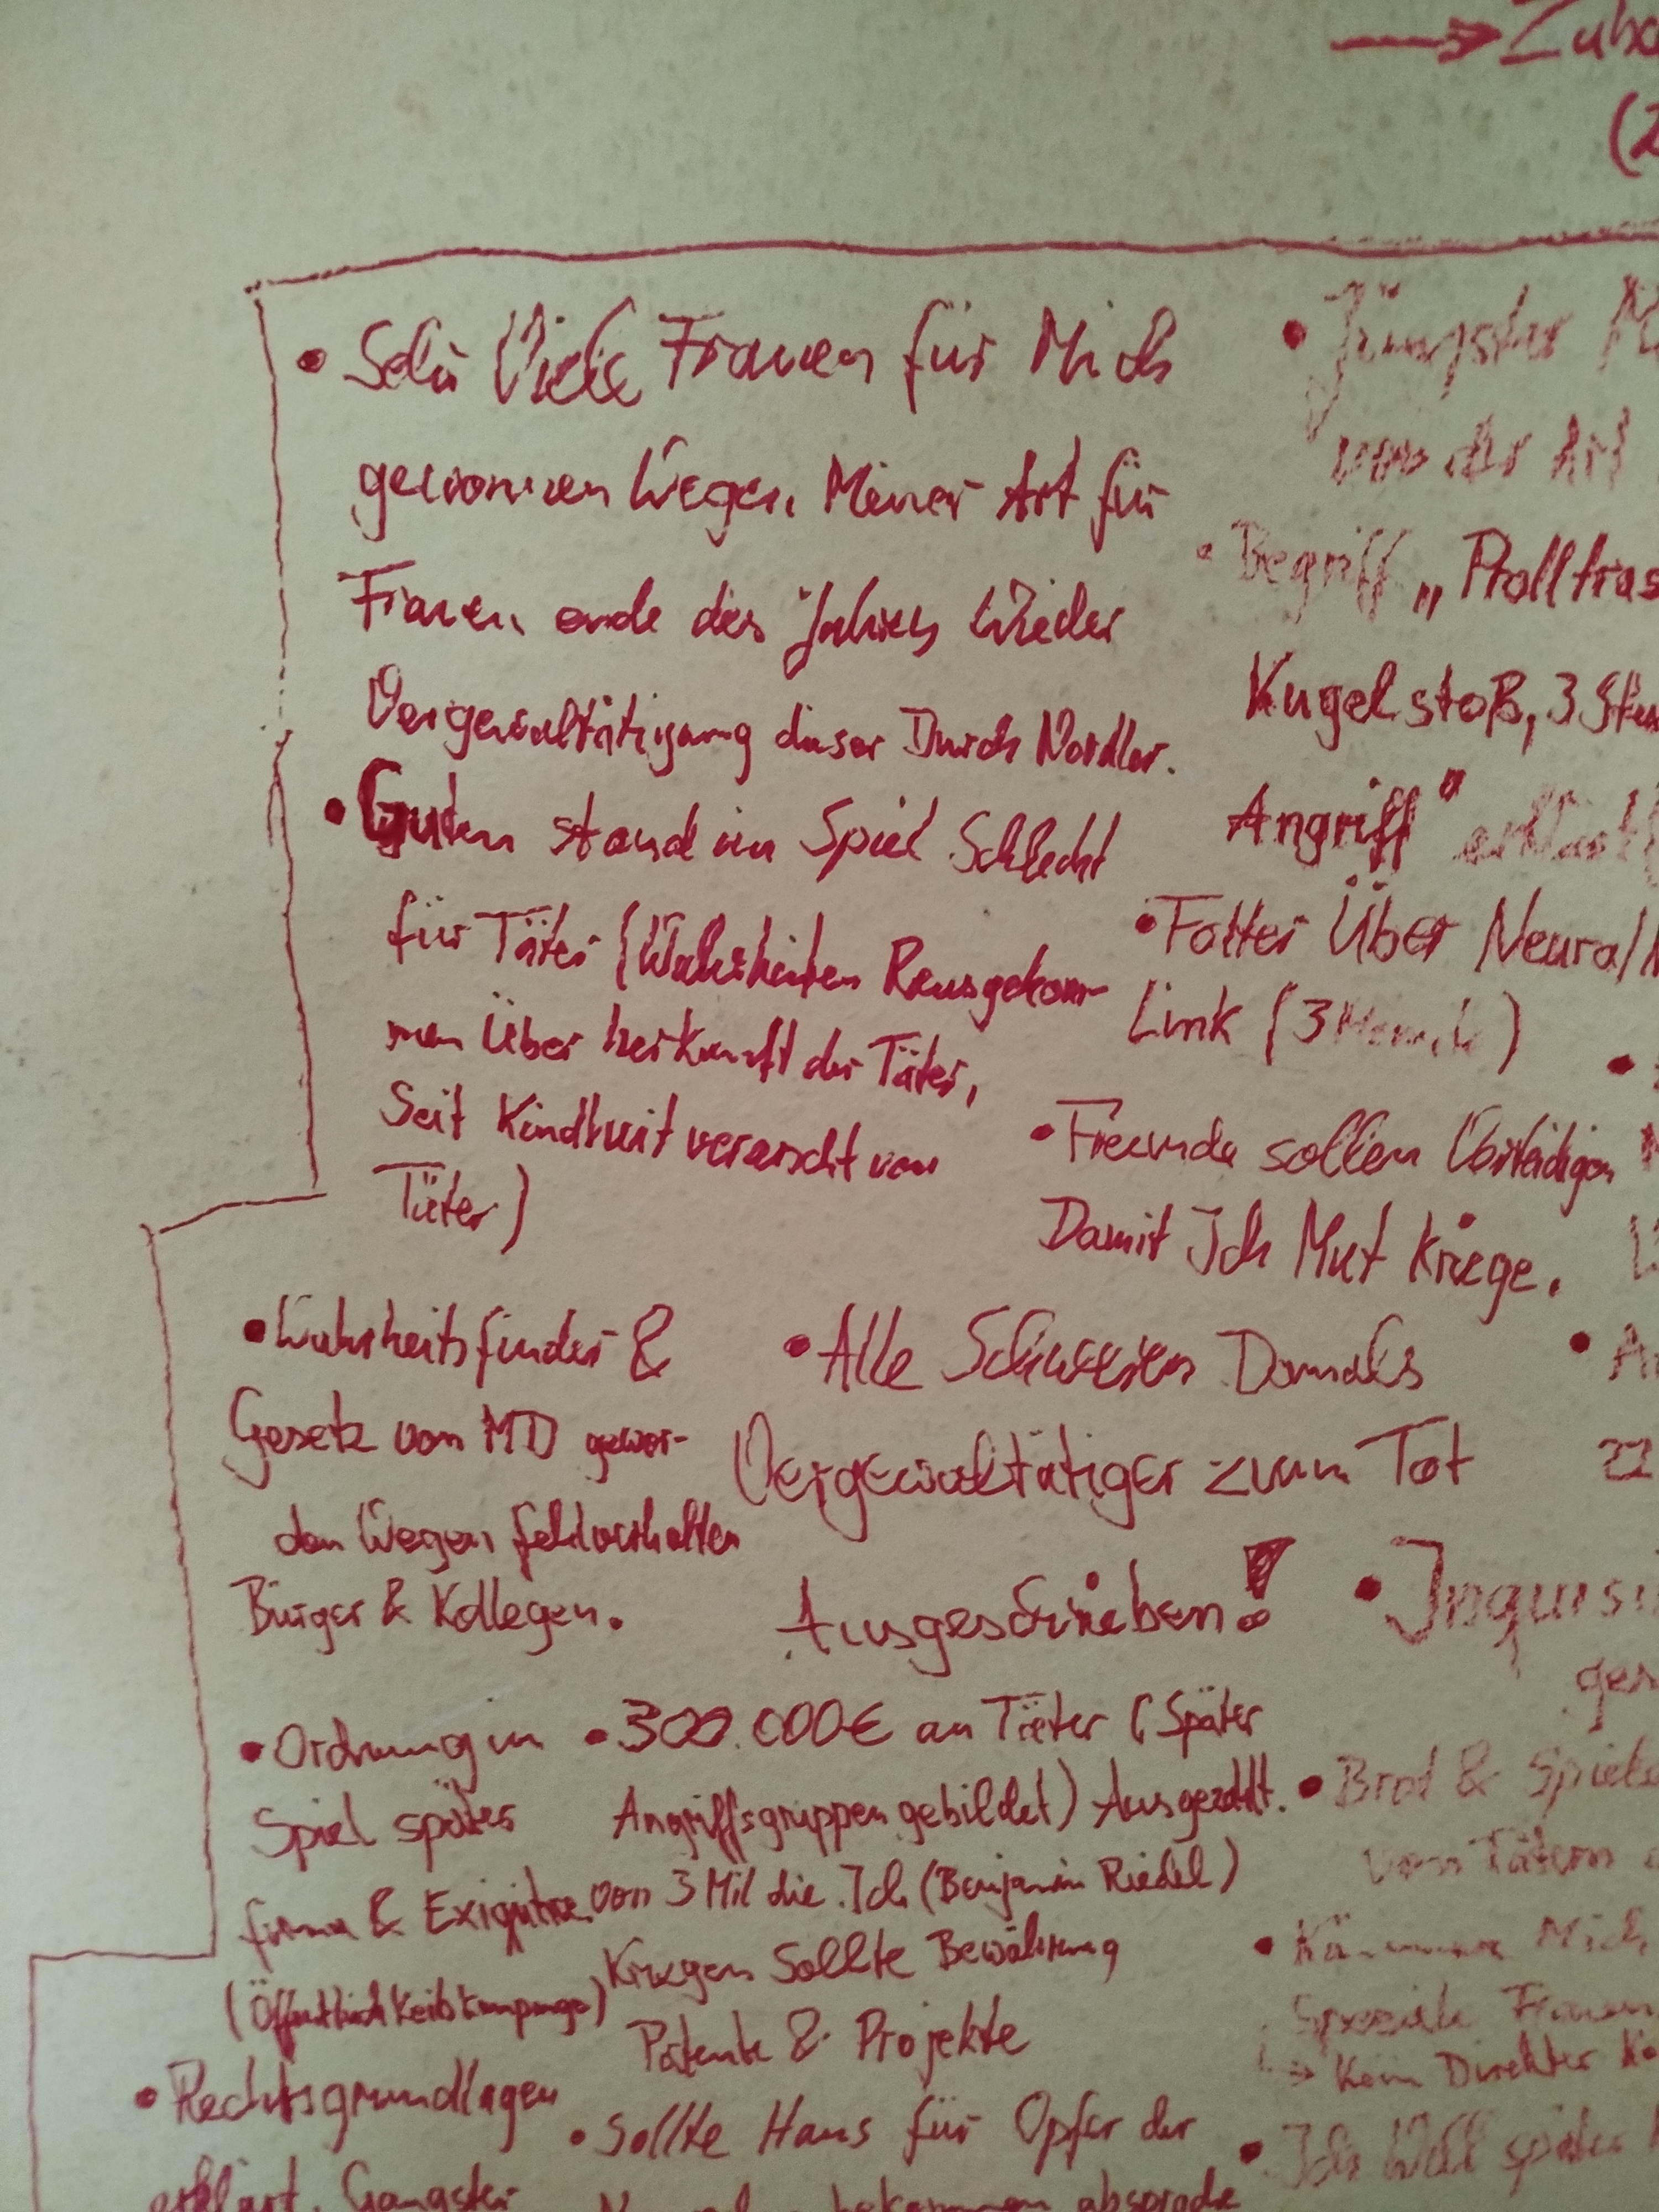 • Sehr Viele Frauen für Mich
gewonnen Wegen Meiner Art für
Frauen, ende des jahres Wieder
Vergewaltätigung dieser Durch Nordler.
• Guten stand im Spiel Schlecht
für Täter (Wahrheiten Rausgekom-
men Über herkunft der Täter,
Seit Kindheit verarscht von
Täter)
• Wahrheitsfinder &
Gesetz von MD gewor-
den Wegen fehlverhalten
Bürger & Kollegen.
• Ordnung im
Spiel später
firma & Exiqutive
(Öffentlichkeitskampange)
• Rechtsgrundlagen
erklärt, Gangster
• Jüngster
von der Art
• Begriff „Prolltras
Kugelstoß, 3
Angriff" erklärt
• Folter Über Neural
Link (3
• Freunde sollen Verteidigen
Damit Ich Mut Kriege.
• Alle Schweren Damals
Vergewaltätiger zum Tot
Ausgeschrieben!
• 300.000€ an Täter (Später
Angriffsgruppen gebildet) Ausgezahlt.
von 3 Mil die Ich (Benjamin Riedel)
Kriegen Sollte Bewährung
Patente & Projekte
• Sollte Haus für Opfer der
bekommen absprache
→ Zuha
(2
22
• Inquisi
ges
• Brot & Spiele
von Tätern
• Mich
Spezielle Frauen
→ Kein Direkter Ko
• Ich Will später